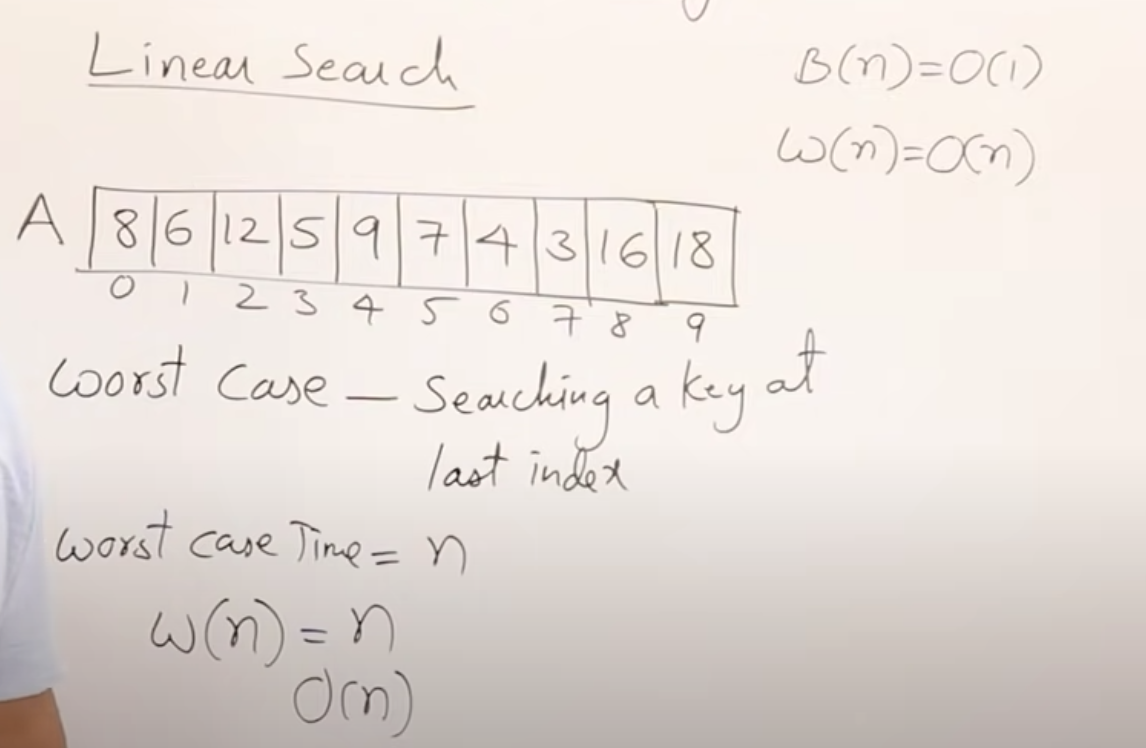 Linear Search
B(n)=O(1)
W(n)=O(n)
A 8 6 12 5 9 7 4 3 16 18
0 1 2 3 4 5 6 7 8 9
Worst Case — Searching a key at
last index
Worst case Time = n
W(n) = n
O(n)